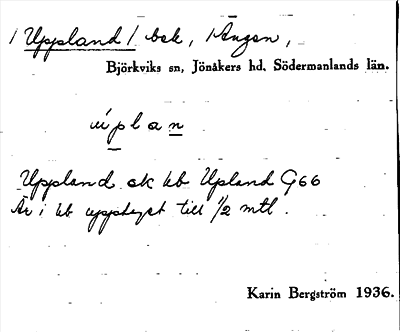 / Uppland / bsk, / Ängen,
Björkviks sn, Jönåkers hd, Södermanlands län.
úplan
Uppland sk kb Upland G66
Är i kb uppskyst till 1/2 mtl.
Karin Bergström 1936.